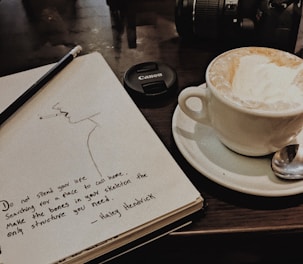 Canon
Do not stand your use
Searching for a place to call home.
Make the bones in your skeleton the
only structure you need.
— Haley Hendrick